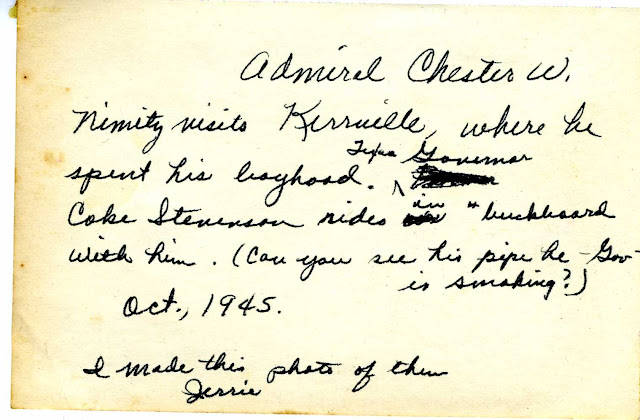 Admiral Chester W.
Nimitz visits Kerrville, where he
spent his boyhood. Texas Governor
Coke Stevenson rides in "buckboard
with him. (Can you see his pipe he - Gov -
is smoking?)
Oct., 1945.
I made this photo of them
Jerrie